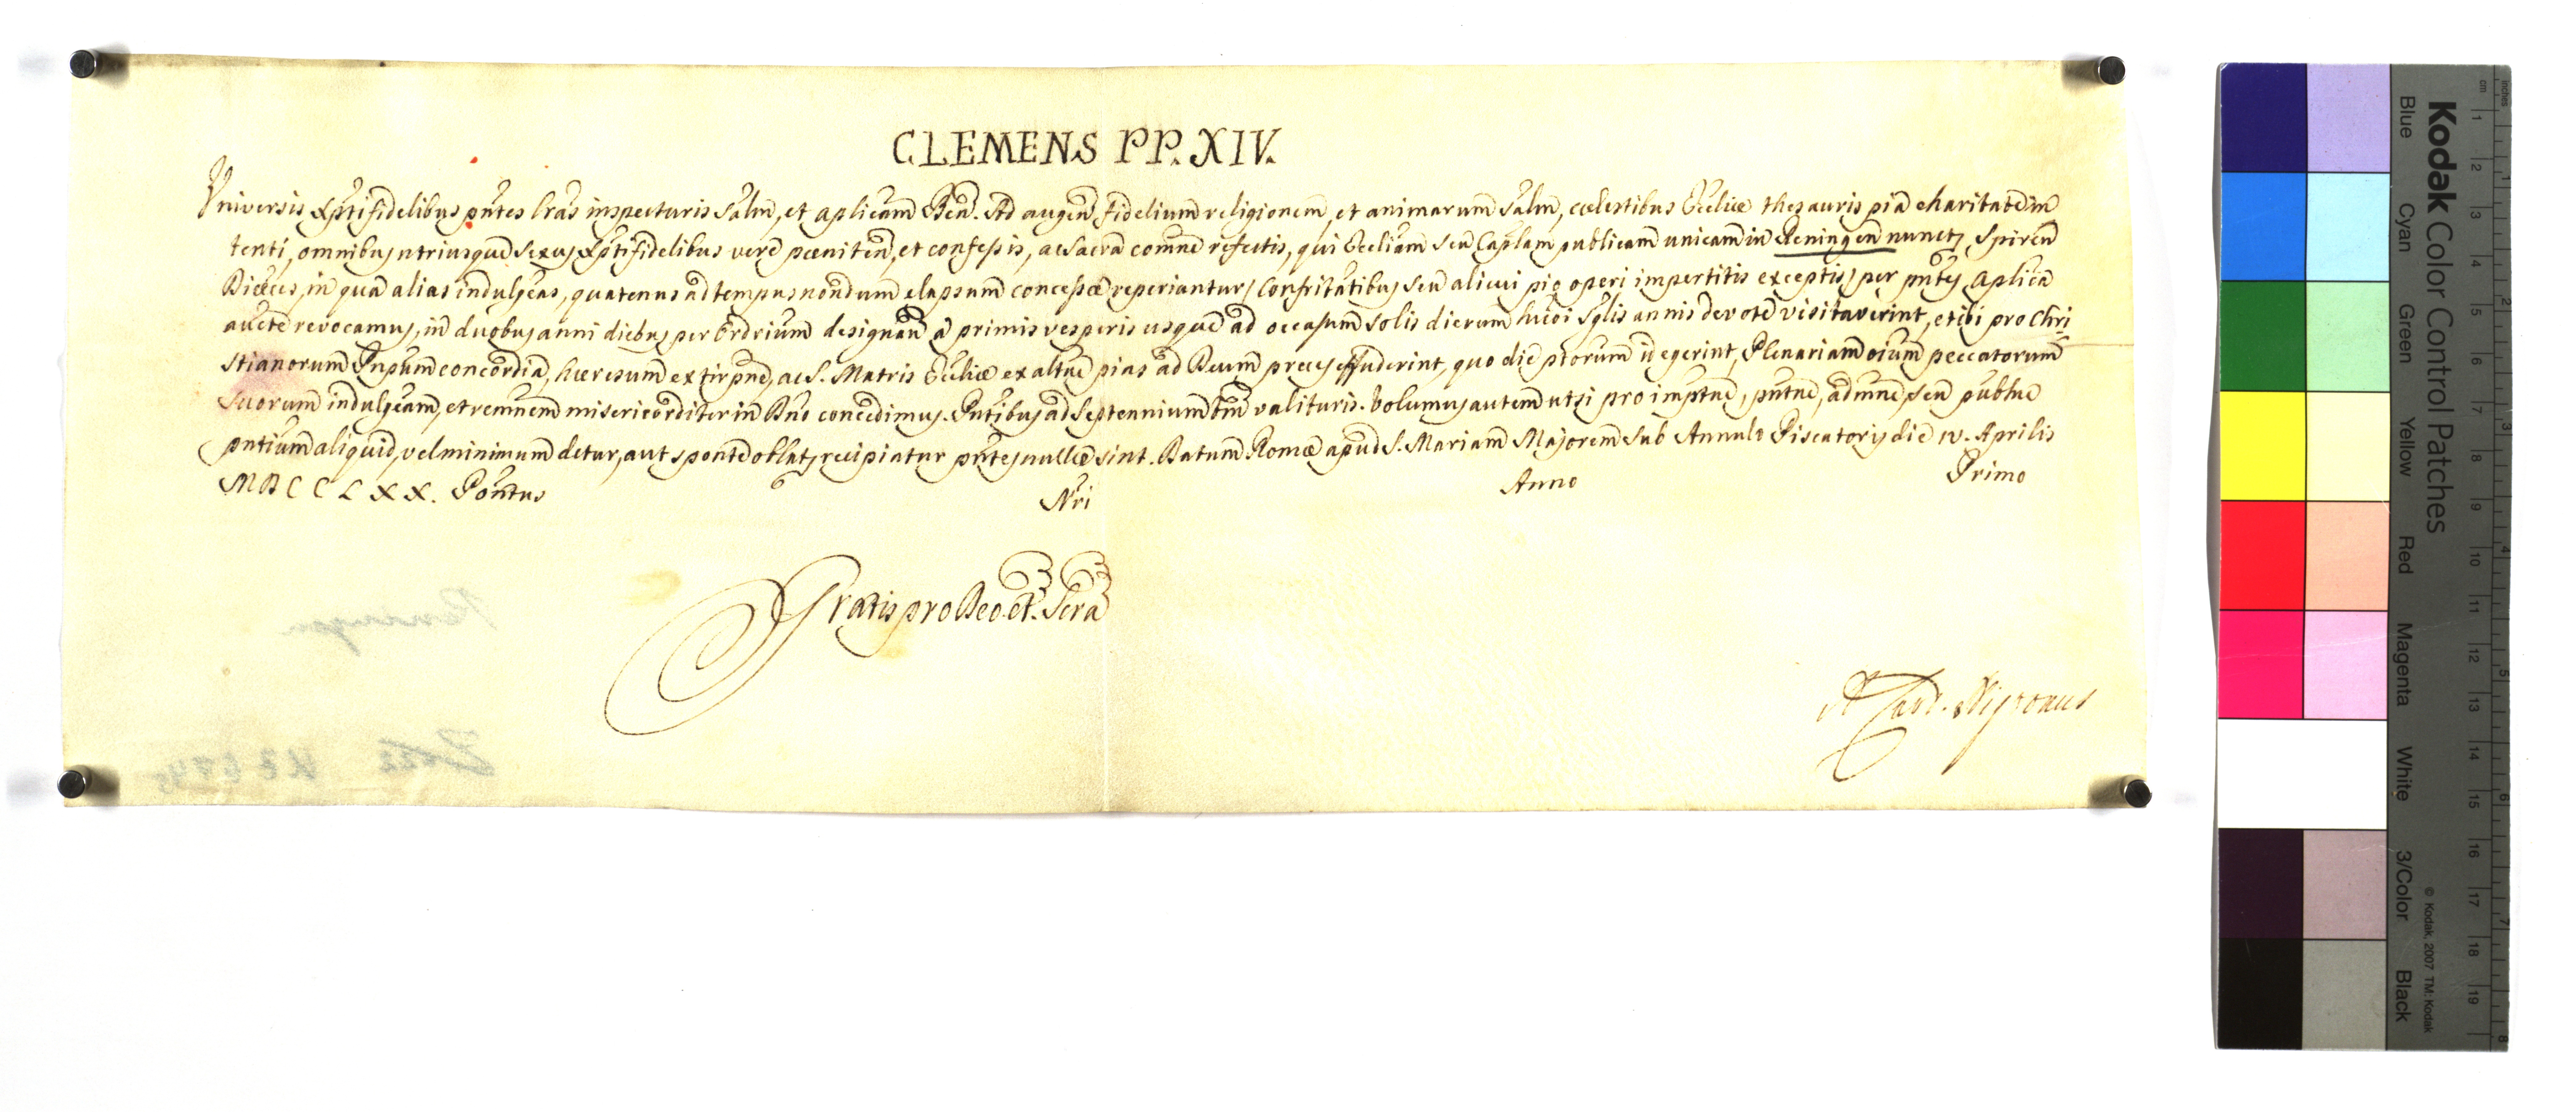 CLEMENS PP. XIV.
Universis Xpti fidelibus pntes lras inspecturis Salm, et aplicam Ben. Ad augen fidelium religionem, et animarum Salm, cœlestibus Eccliæ thesauris pia charitate in
tenti, omnibus utriusque Sexus Xpti fidelibus vere pœniten, et confessis, ac Sacra comne refectis, qui Eccliam seu Caplam publicam unicam in Reningen nunctę Spiren
Diœces, in qua alias indulgeas, quatenus ad tempus nondum elapsum concessæ reperiantur, Confritatibus seu alicui pio operi impertitis exceptis, per pntes Aplica
aucte revocamus, in duobus anni diebus per Ordrium designan a primis vesperis usque ad occasum Solis dierum hujoi Sglis annis devote visitaverint, et ibi pro Chri
stianorum Pnpum concordia, hæresum extirpne, ac S. Matris Ecliæ exaltne pias ad Deum preces effuderint, quo die ptorum id egerint, Plenariam oium peccatorum
Suorum indulgeam, et remnem misericorditer in Dno concedimus. Pntibus ad Septennium tm valituris. Volumus autem ut si pro imptne, pntne, admne, seu publne
pntium aliquid, vel minimum detur, aut sponte oblatę recipiatur pntes nullæ sint. Datum Romæ apud S. Mariam Majorem Sub Annulo Piscatoris die iv. Aprilis
MDCCLXX. Pontus Nri Anno Primo
Gratis pro Deo et Scra
A Card. Nigronus
Kodak Color Control Patches
Blue Cyan Green Yellow Red Magenta White 3/Color Black
© Kodak, 2007 TM: Kodak
cm 1 2 3 4 5 6 7 8 9 10 11 12 13 14 15 16 17 18 19
inches 1 2 3 4 5 6 7 8